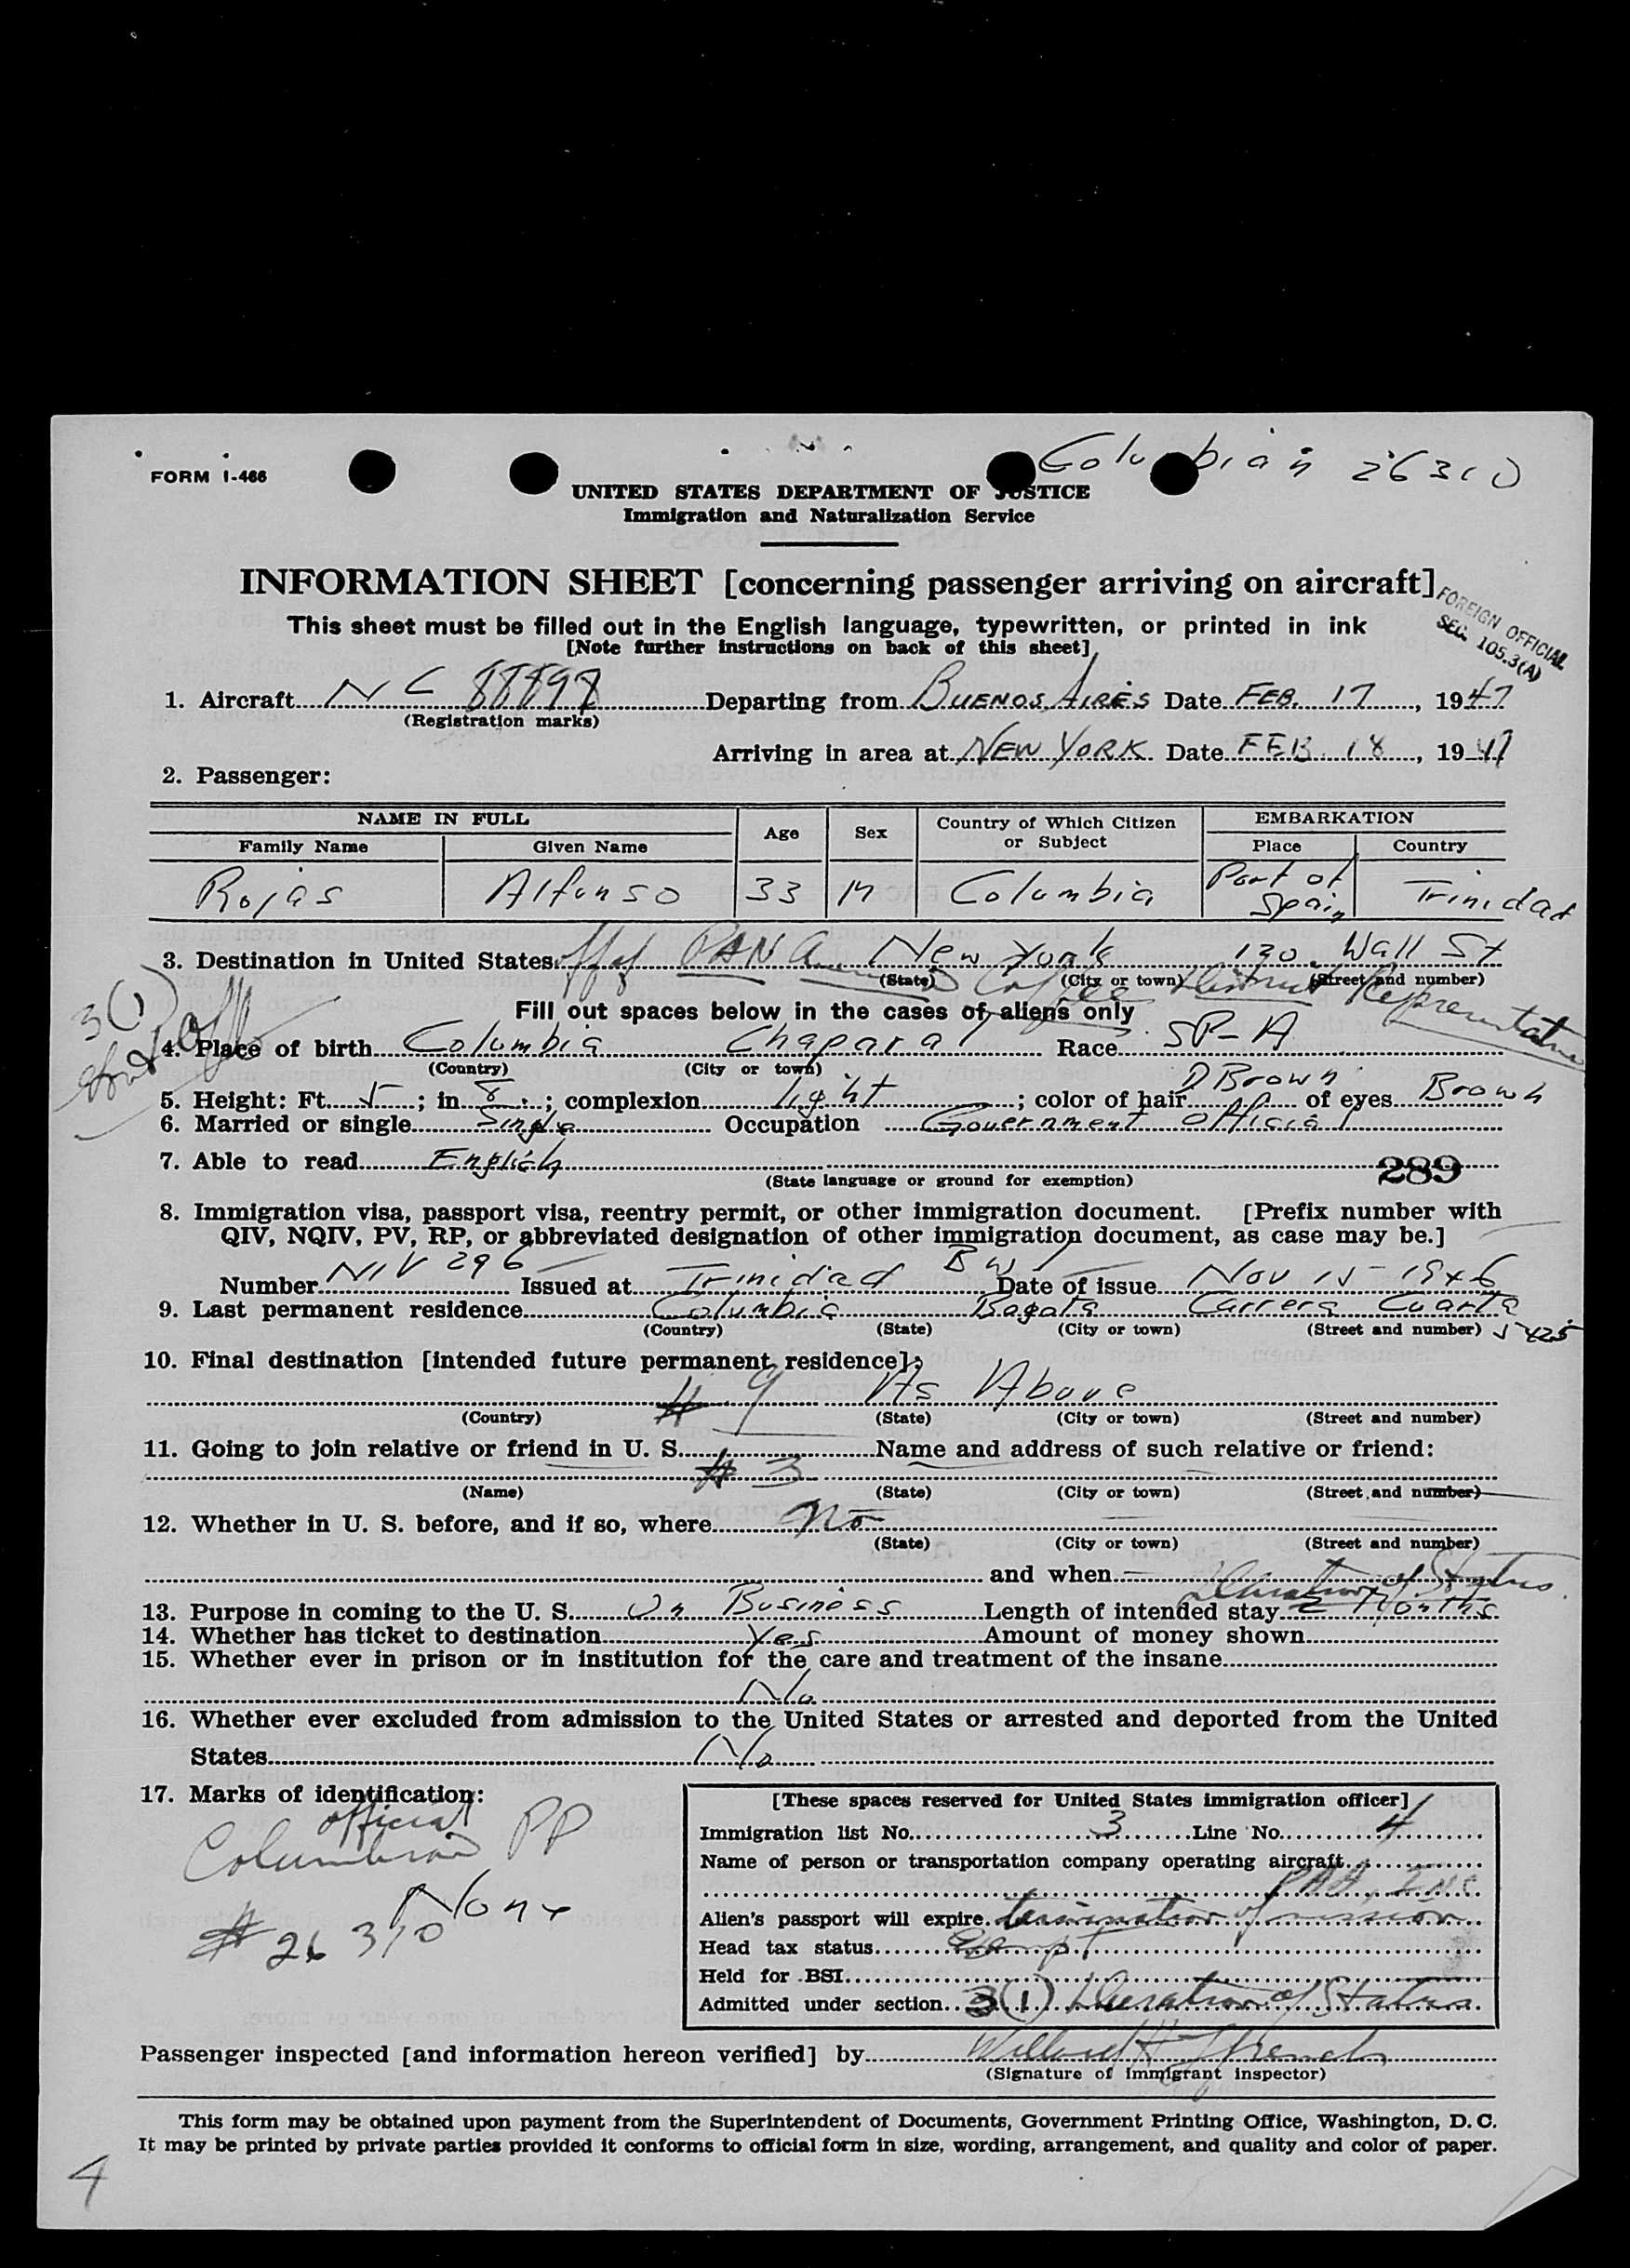 Columbian 26310
FORM I-466
UNITED STATES DEPARTMENT OF JUSTICE
Immigration and Naturalization Service
INFORMATION SHEET [concerning passenger arriving on aircraft]
FOREIGN OFFICIAL
SEC. 105.3(A)
This sheet must be filled out in the English language, typewritten, or printed in ink
[Note further instructions on back of this sheet]
1. Aircraft NC 88898 Departing from BUENOS AIRES Date FEB. 17, 1947
(Registration marks)
Arriving in area at NEW YORK Date FEB. 18, 1947
2. Passenger:
NAME IN FULL Age Sex Country of Which Citizen or Subject EMBARKATION
Family Name Given Name Place Country
Rojas Alfonso 33 M Columbia Port of Spain Trinidad
3. Destination in United States PAN American Coffee New York 120 Wall St
(State) (City or town) (Street and number)
Representative
3(1)
Fill out spaces below in the cases of aliens only
4. Place of birth Columbia Chaparal Race SP-A
(Country) (City or town)
5. Height: Ft. 5; in. 8; complexion light; color of hair D Brown of eyes Brown
6. Married or single Single Occupation Government official
7. Able to read English
(State language or ground for exemption)
289
8. Immigration visa, passport visa, reentry permit, or other immigration document. [Prefix number with
QIV, NQIV, PV, RP, or abbreviated designation of other immigration document, as case may be.]
Number NIV 296 Issued at Trinidad BWI Date of issue Nov 15-1946
9. Last permanent residence Columbia Bagota Carrera Cuarta 5425
(Country) (State) (City or town) (Street and number)
10. Final destination [intended future permanent residence]:
# 9 As Above
(Country) (State) (City or town) (Street and number)
11. Going to join relative or friend in U. S. Name and address of such relative or friend:
# 3
(Name) (State) (City or town) (Street and number)
12. Whether in U. S. before, and if so, where No
(State) (City or town) (Street and number)
and when
Duration of Status
13. Purpose in coming to the U. S. On Business Length of intended stay 2 Months
14. Whether has ticket to destination Yes Amount of money shown
15. Whether ever in prison or in institution for the care and treatment of the insane
No
16. Whether ever excluded from admission to the United States or arrested and deported from the United
States No
17. Marks of identification:
official
Columbian PP
None
# 26310
[These spaces reserved for United States immigration officer]
Immigration list No. 3 Line No. 4
Name of person or transportation company operating aircraft
PAA, INC
Alien's passport will expire termination of mission
Head tax status Exempt
Held for BSI
Admitted under section 3(1) Duration of Status
Passenger inspected [and information hereon verified] by Willard H French
(Signature of immigrant inspector)
This form may be obtained upon payment from the Superintendent of Documents, Government Printing Office, Washington, D. C.
It may be printed by private parties provided it conforms to official form in size, wording, arrangement, and quality and color of paper.
4